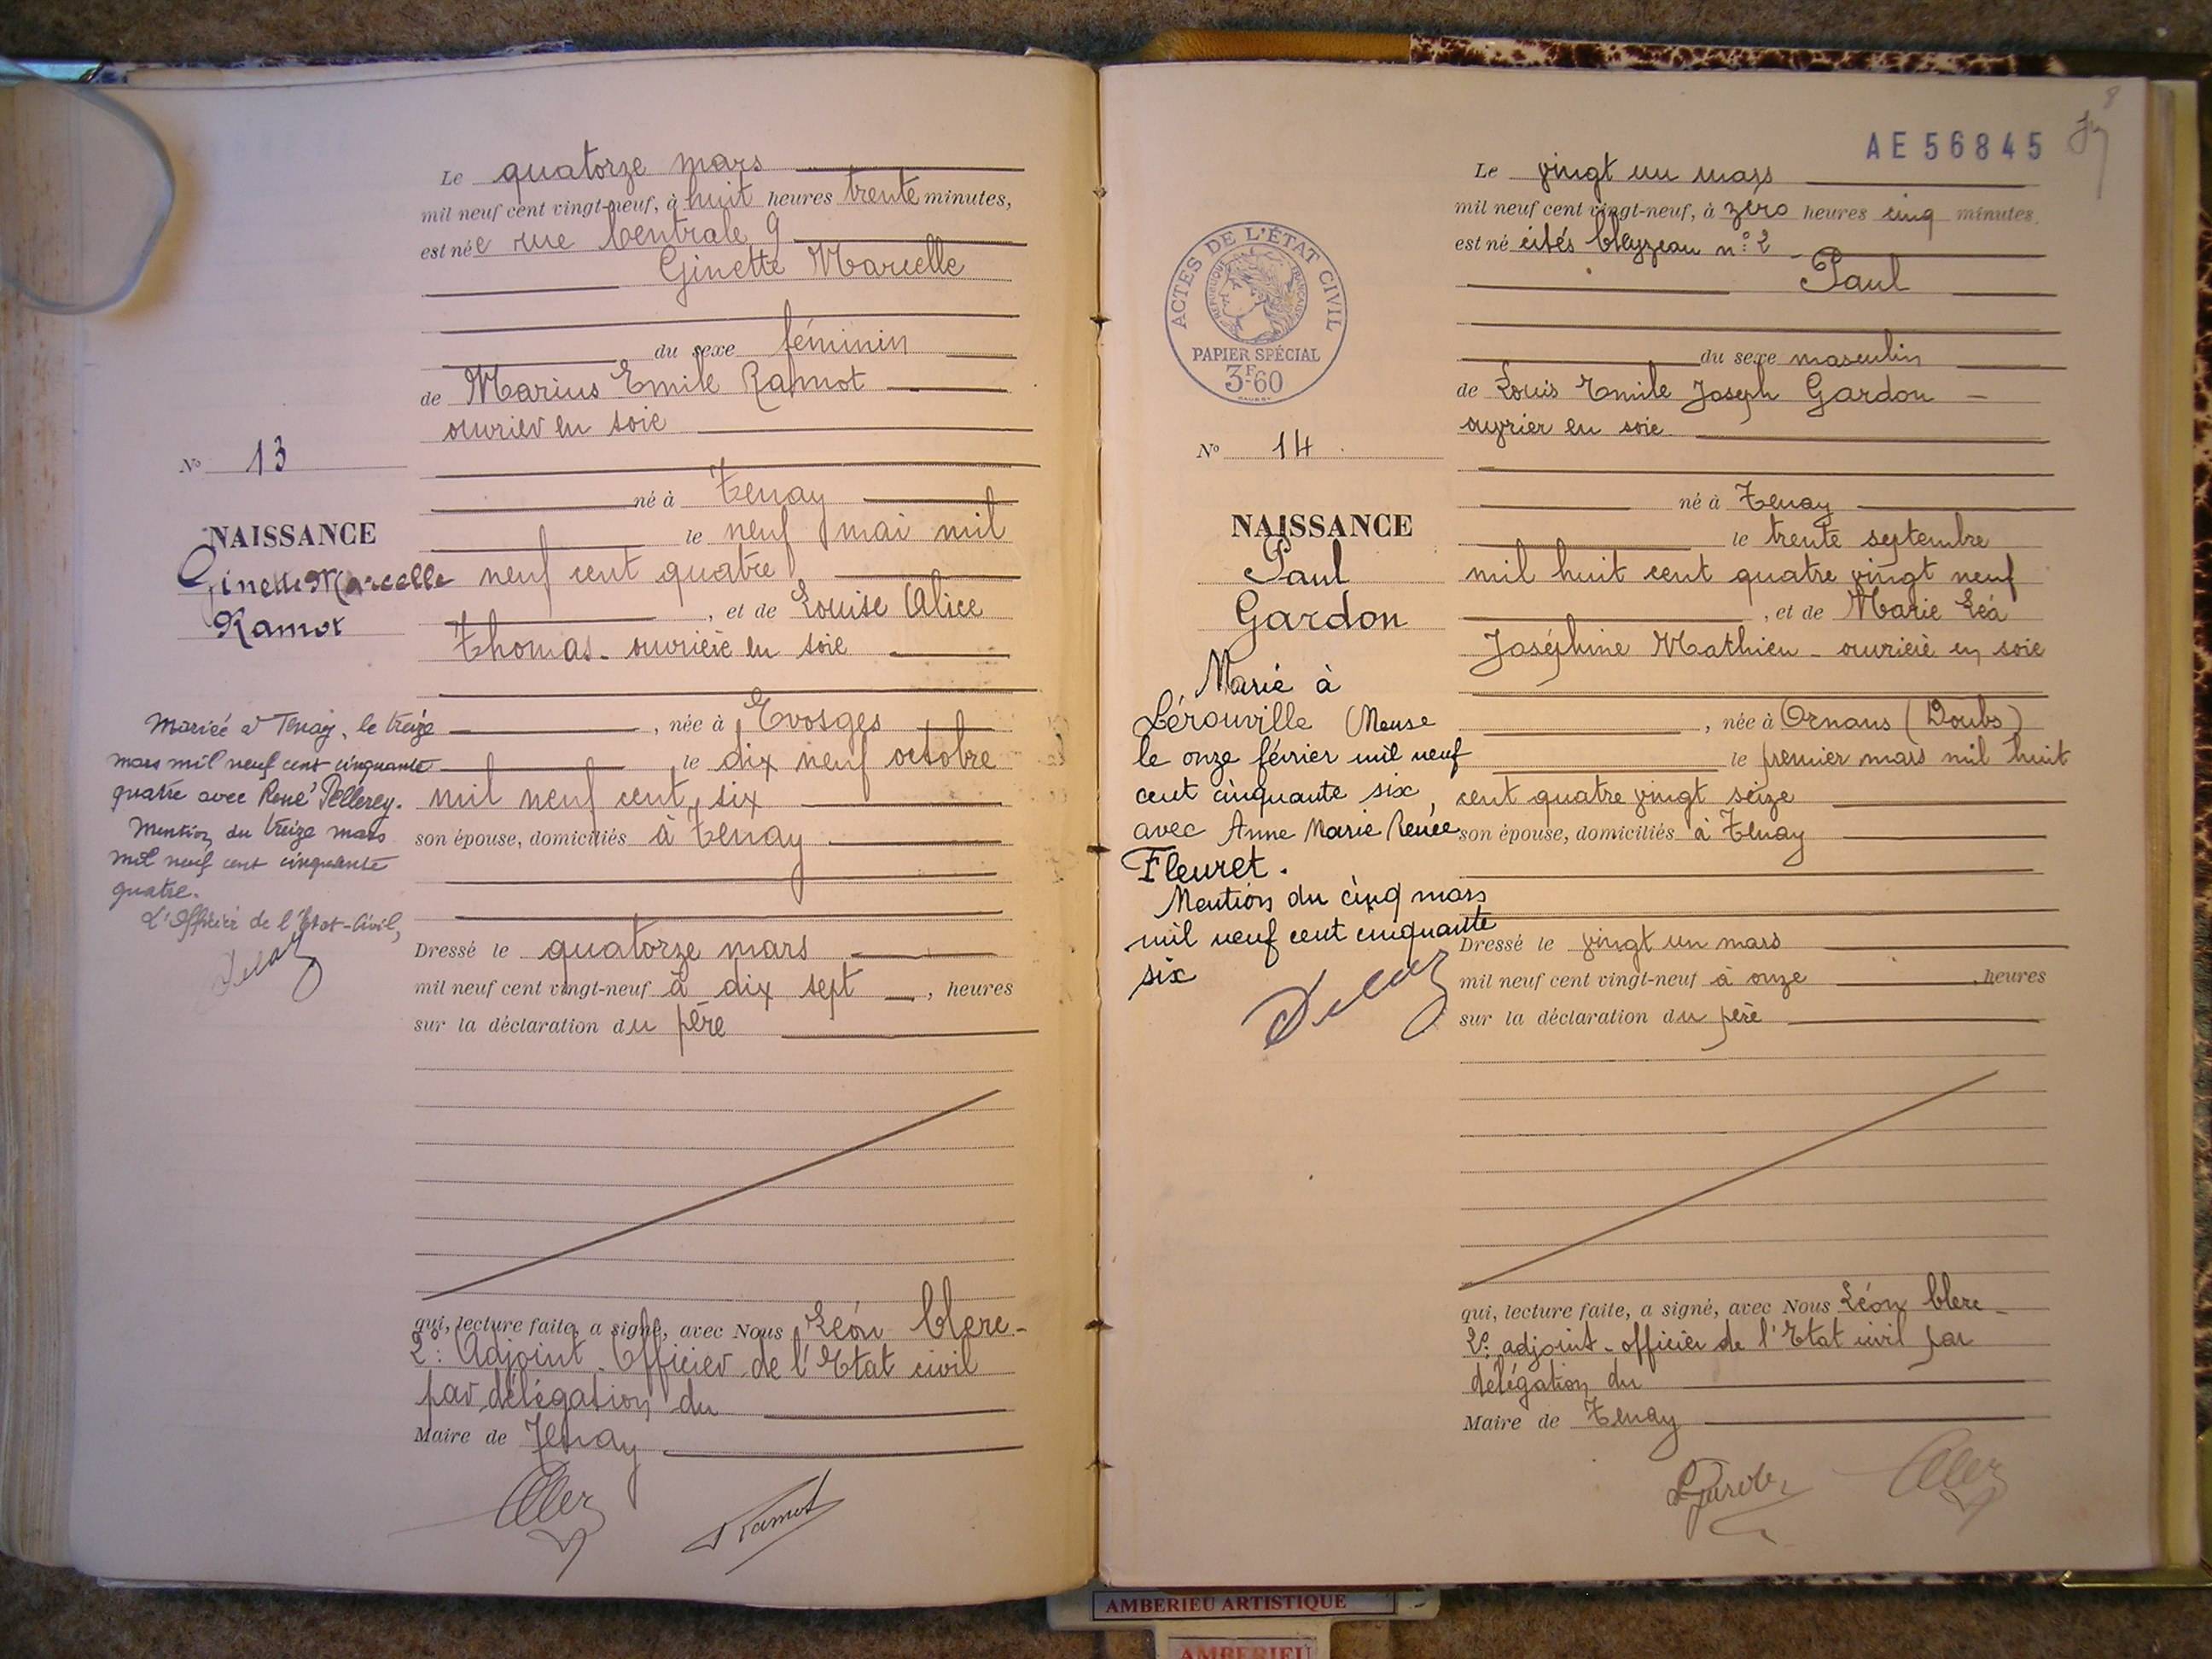 Le quatorze mars
mil neuf cent vingt-neuf, à huit heures trente minutes,
est née rue Centrale 9
Ginette Marcelle
du sexe féminin
de Marius Emile Ramot
ouvrier en soie
né à Tenay
le neuf mai mil
neuf cent quatre
, et de Louise Alice
Thomas - ouvrière en soie
, née à Evosges
le dix neuf octobre
mil neuf cent six
son épouse, domiciliés à Tenay
Dressé le quatorze mars
mil neuf cent vingt-neuf à dix sept , heures
sur la déclaration du père
qui, lecture faite, a signé, avec Nous Léon Clerc -
2e Adjoint - Officier de l'Etat civil
par délégation du
Maire de Tenay
Ramot
No 13
NAISSANCE
Ginette Marcelle
Ramot
Mariée à Tenay, le treize
mars mil neuf cent cinquante
quatre avec René Pellerey.
Mention du treize mars
mil neuf cent cinquante
quatre.
L'Officier de l'Etat-Civil,
AE 56845
Le vingt un mars
mil neuf cent vingt-neuf, à zéro heures cinq minutes
est né cités Cleyzeau n° 2
Paul
du sexe masculin
de Louis Emile Joseph Gardon -
ouvrier en soie
né à Tenay
le trente septembre
mil huit cent quatre vingt neuf
, et de Marie Léa
Joséphine Mathieu - ouvrière en soie
, née à Ornans (Doubs)
le premier mars mil huit
cent quatre vingt seize
son épouse, domiciliés à Tenay
Dressé le vingt un mars
mil neuf cent vingt-neuf à onze , heures
sur la déclaration du père
qui, lecture faite, a signé, avec Nous Léon Clerc -
2e adjoint - officier de l'Etat civil par
délégation du
Maire de Tenay
ACTES DE L'ÉTAT CIVIL
RÉPUBLIQUE FRANÇAISE
PAPIER SPÉCIAL
3F60
No 14
NAISSANCE
Paul
Gardon
Marié à
Lérouville (Meuse
le onze février mil neuf
cent cinquante six,
avec Anne Marie Renée
Fleuret.
Mention du cinq mars
mil neuf cent cinquante
six
AMBERIEU ARTISTIQUE
AMBERIEU